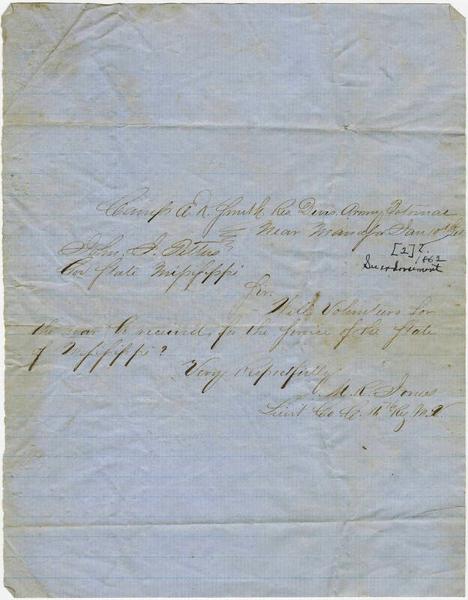 Camp E. K. Smith Res Divis. Army Potomac
Near Manafsa Jan 10th
[1]?
1862
See endorsement
John J. Pettus
Gov State Mifsifsippi
Sir.
Will Volunteers for
the war be received, for the service of the State
of Mifsifsippi?
Very respectfully
M. R. Jones
Lieut Co